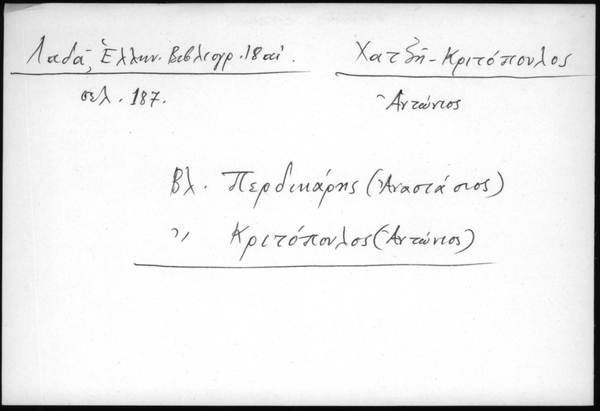 Λαδᾶ, Ἑλλην. Βιβλιογρ. 18 αἰ.
Χατζῆ-Κριτόπουλος
σελ. 187.
Ἀντώνιος
Βλ. Περδικάρης (Ἀναστάσιος)
〃 Κριτόπουλος (Ἀντώνιος)